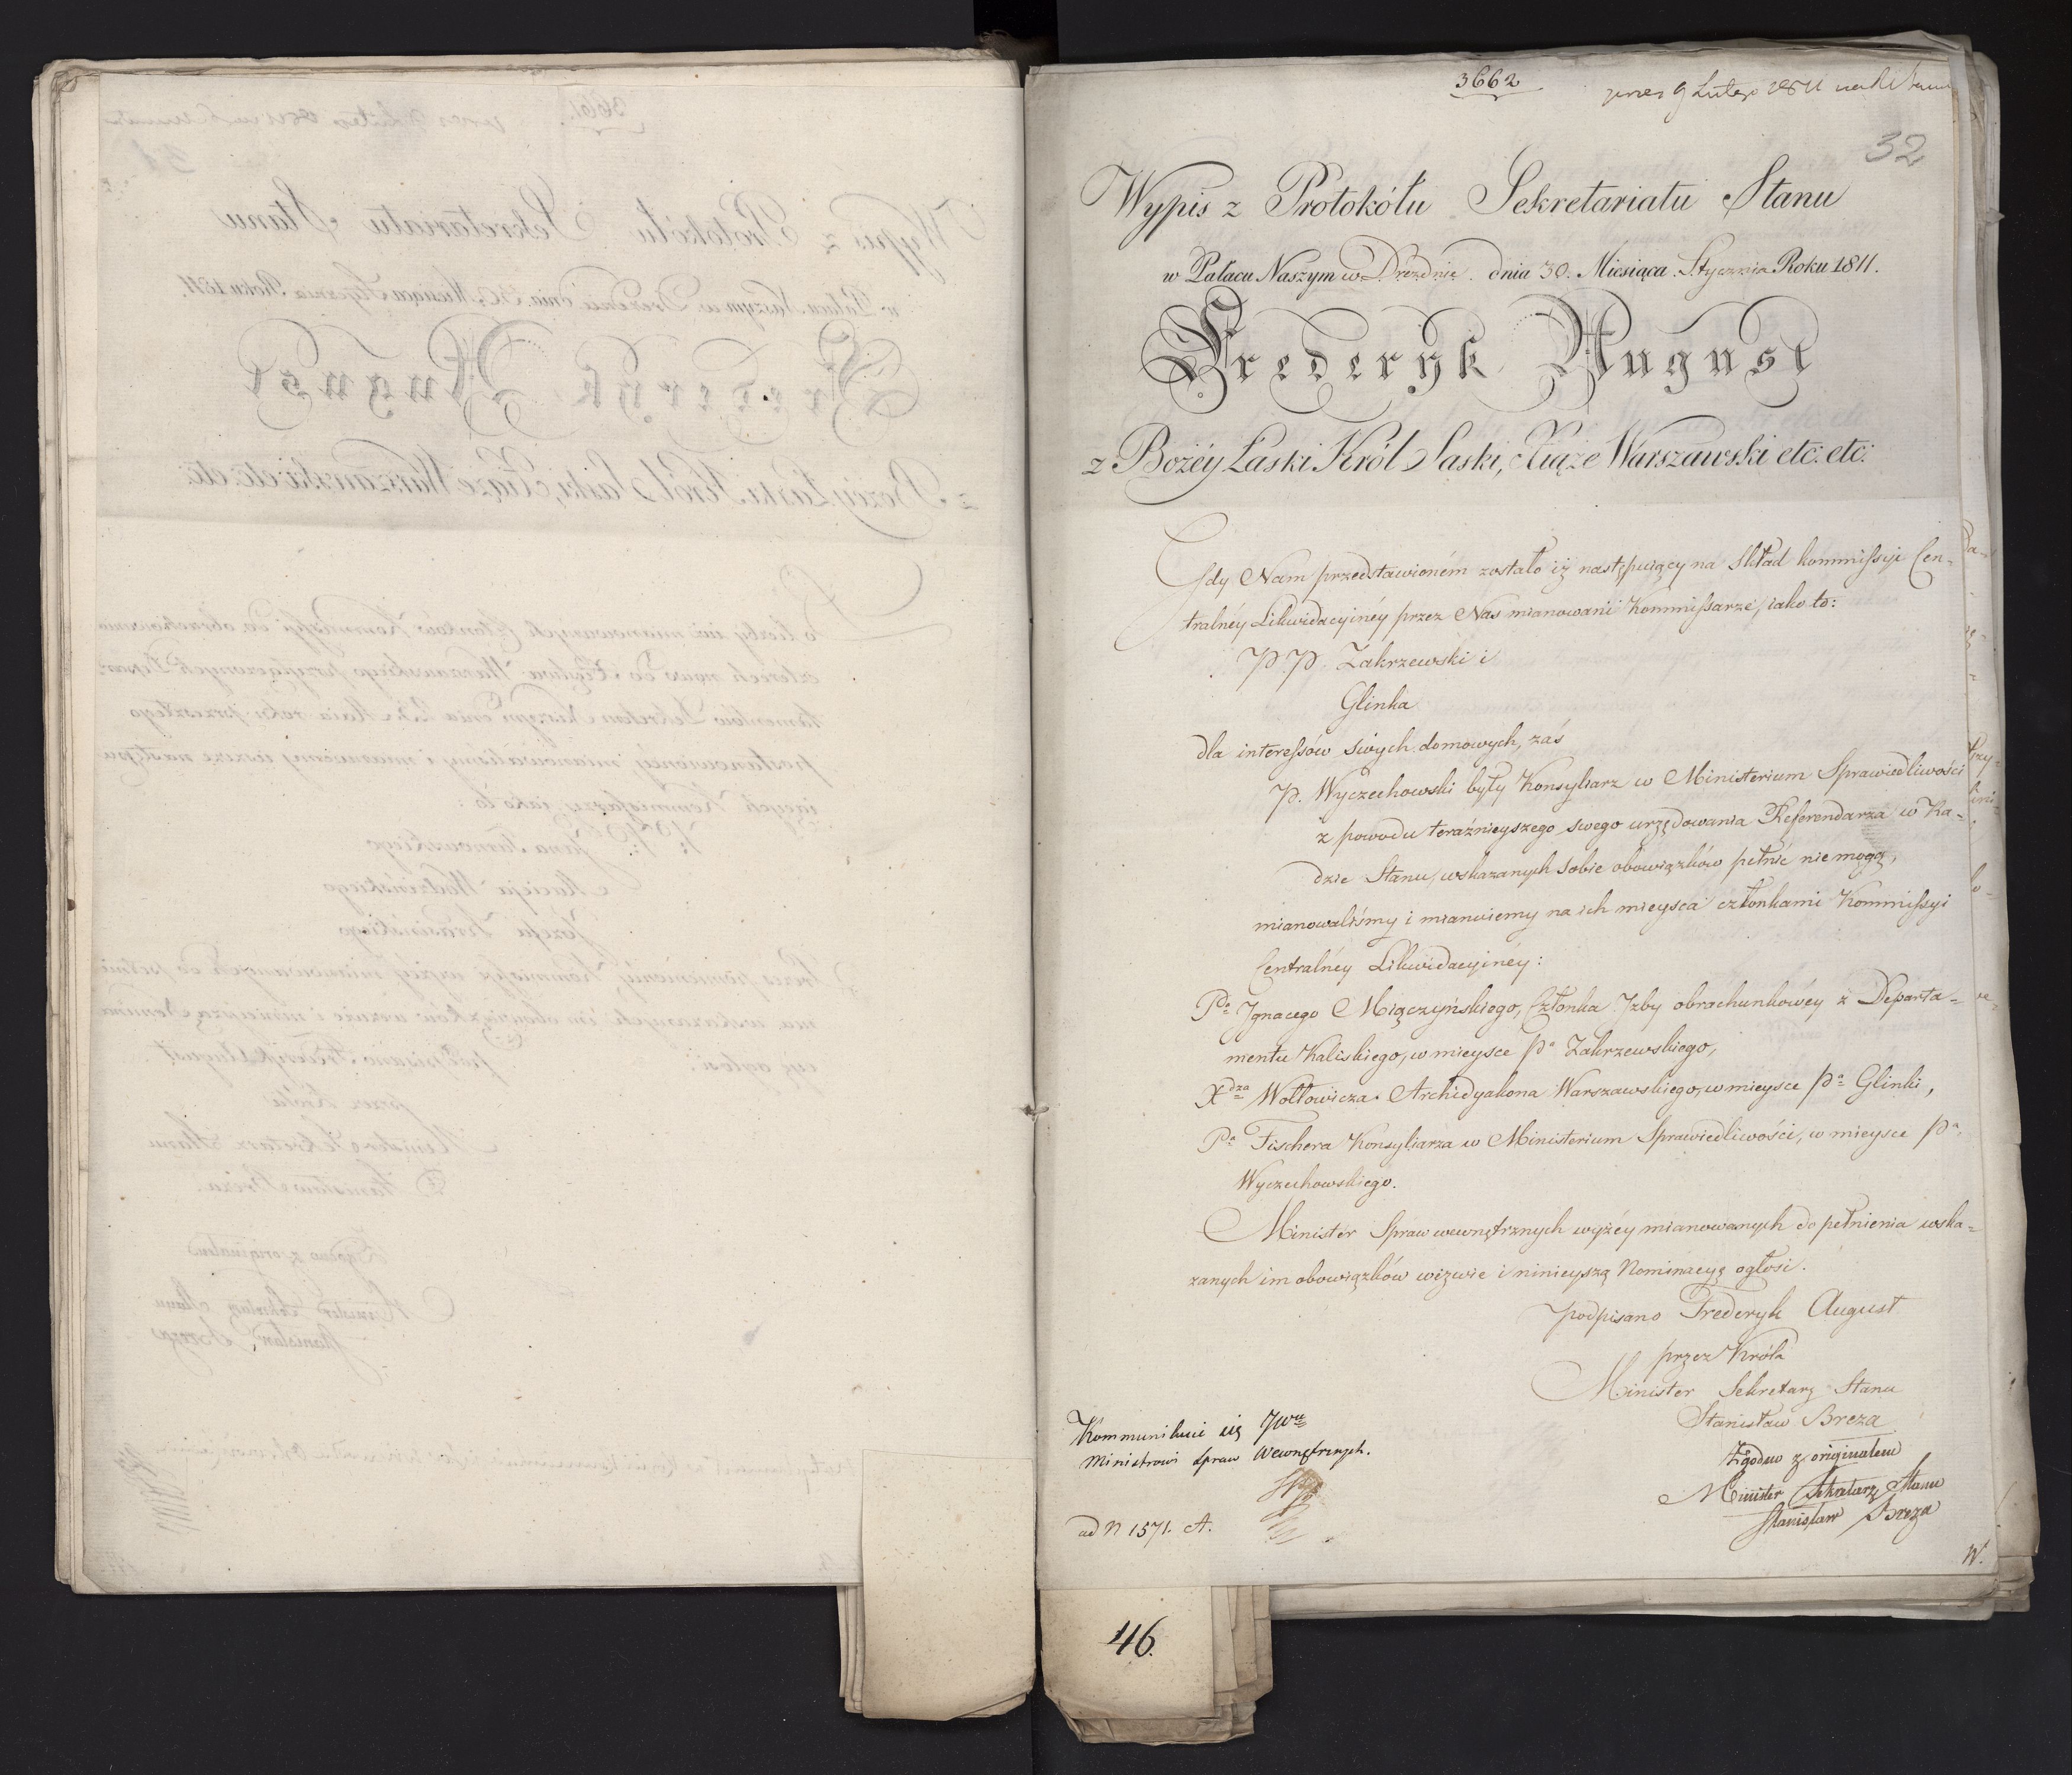 3662
9 Lutego 1811
32
Wypis z Protokółu Sekretariatu Stanu
w Pałacu Naszym w Dreźdnie dnia 30. Miesiąca Stycznia Roku 1811.
Frederyk August
z Bożéy Łaski Król Saski, Xiąże Warszawski etc: etc:
Gdy Nam przedstawioném zostało iż następuiący na Skład kommissyi Cen-
tralnéy Likwidacyinéy przez Nas mianowani Kommissarze, iako to:
P.P. Zakrzewski i
Glinka
dla interessów swych domowych, zaś
P. Wyczechowski były Konsyliarz w Ministerium Sprawiedliwości
z powodu teraźnieyszego swego urzędowania Referendarza w Ra-
dzie Stanu, wskazanych sobie obowiązków pełnić nie mogą,
mianowaliśmy i mianuiemy na ich mieysca członkami Kommissyi
Centralnéy Likwidacyinéy:
Pa Ignacego Miączyńskiego, Członka Izby obrachunkowéy z Departa-
mentu Kaliskiego, w mieysce Pa Zakrzewskiego,
Xdza Wołłowicza Archidyakona Warszawskiego, w mieysce Pa Glinki,
Pa Fischera Konsyliarza w Ministerium Sprawiedliwości, w mieysce Pa
Wyczechowskiego.
Minister Spraw wewnętrznych wyżéy mianowanych do pełnienia wska-
zanych im obowiązków wezwie i ninieyszą Nominacyą ogłosi.
podpisano Frederyk August
przez Króla
Minister Sekretarz Stanu
Stanisław Breza
Zgodno z originałem
Minister Sekretarz Stanu
Stanisław Breza
Kommunikuie się JWu
Ministrowi Spraw Wewnętrznych.
ad N 1571. A.
W.
46.